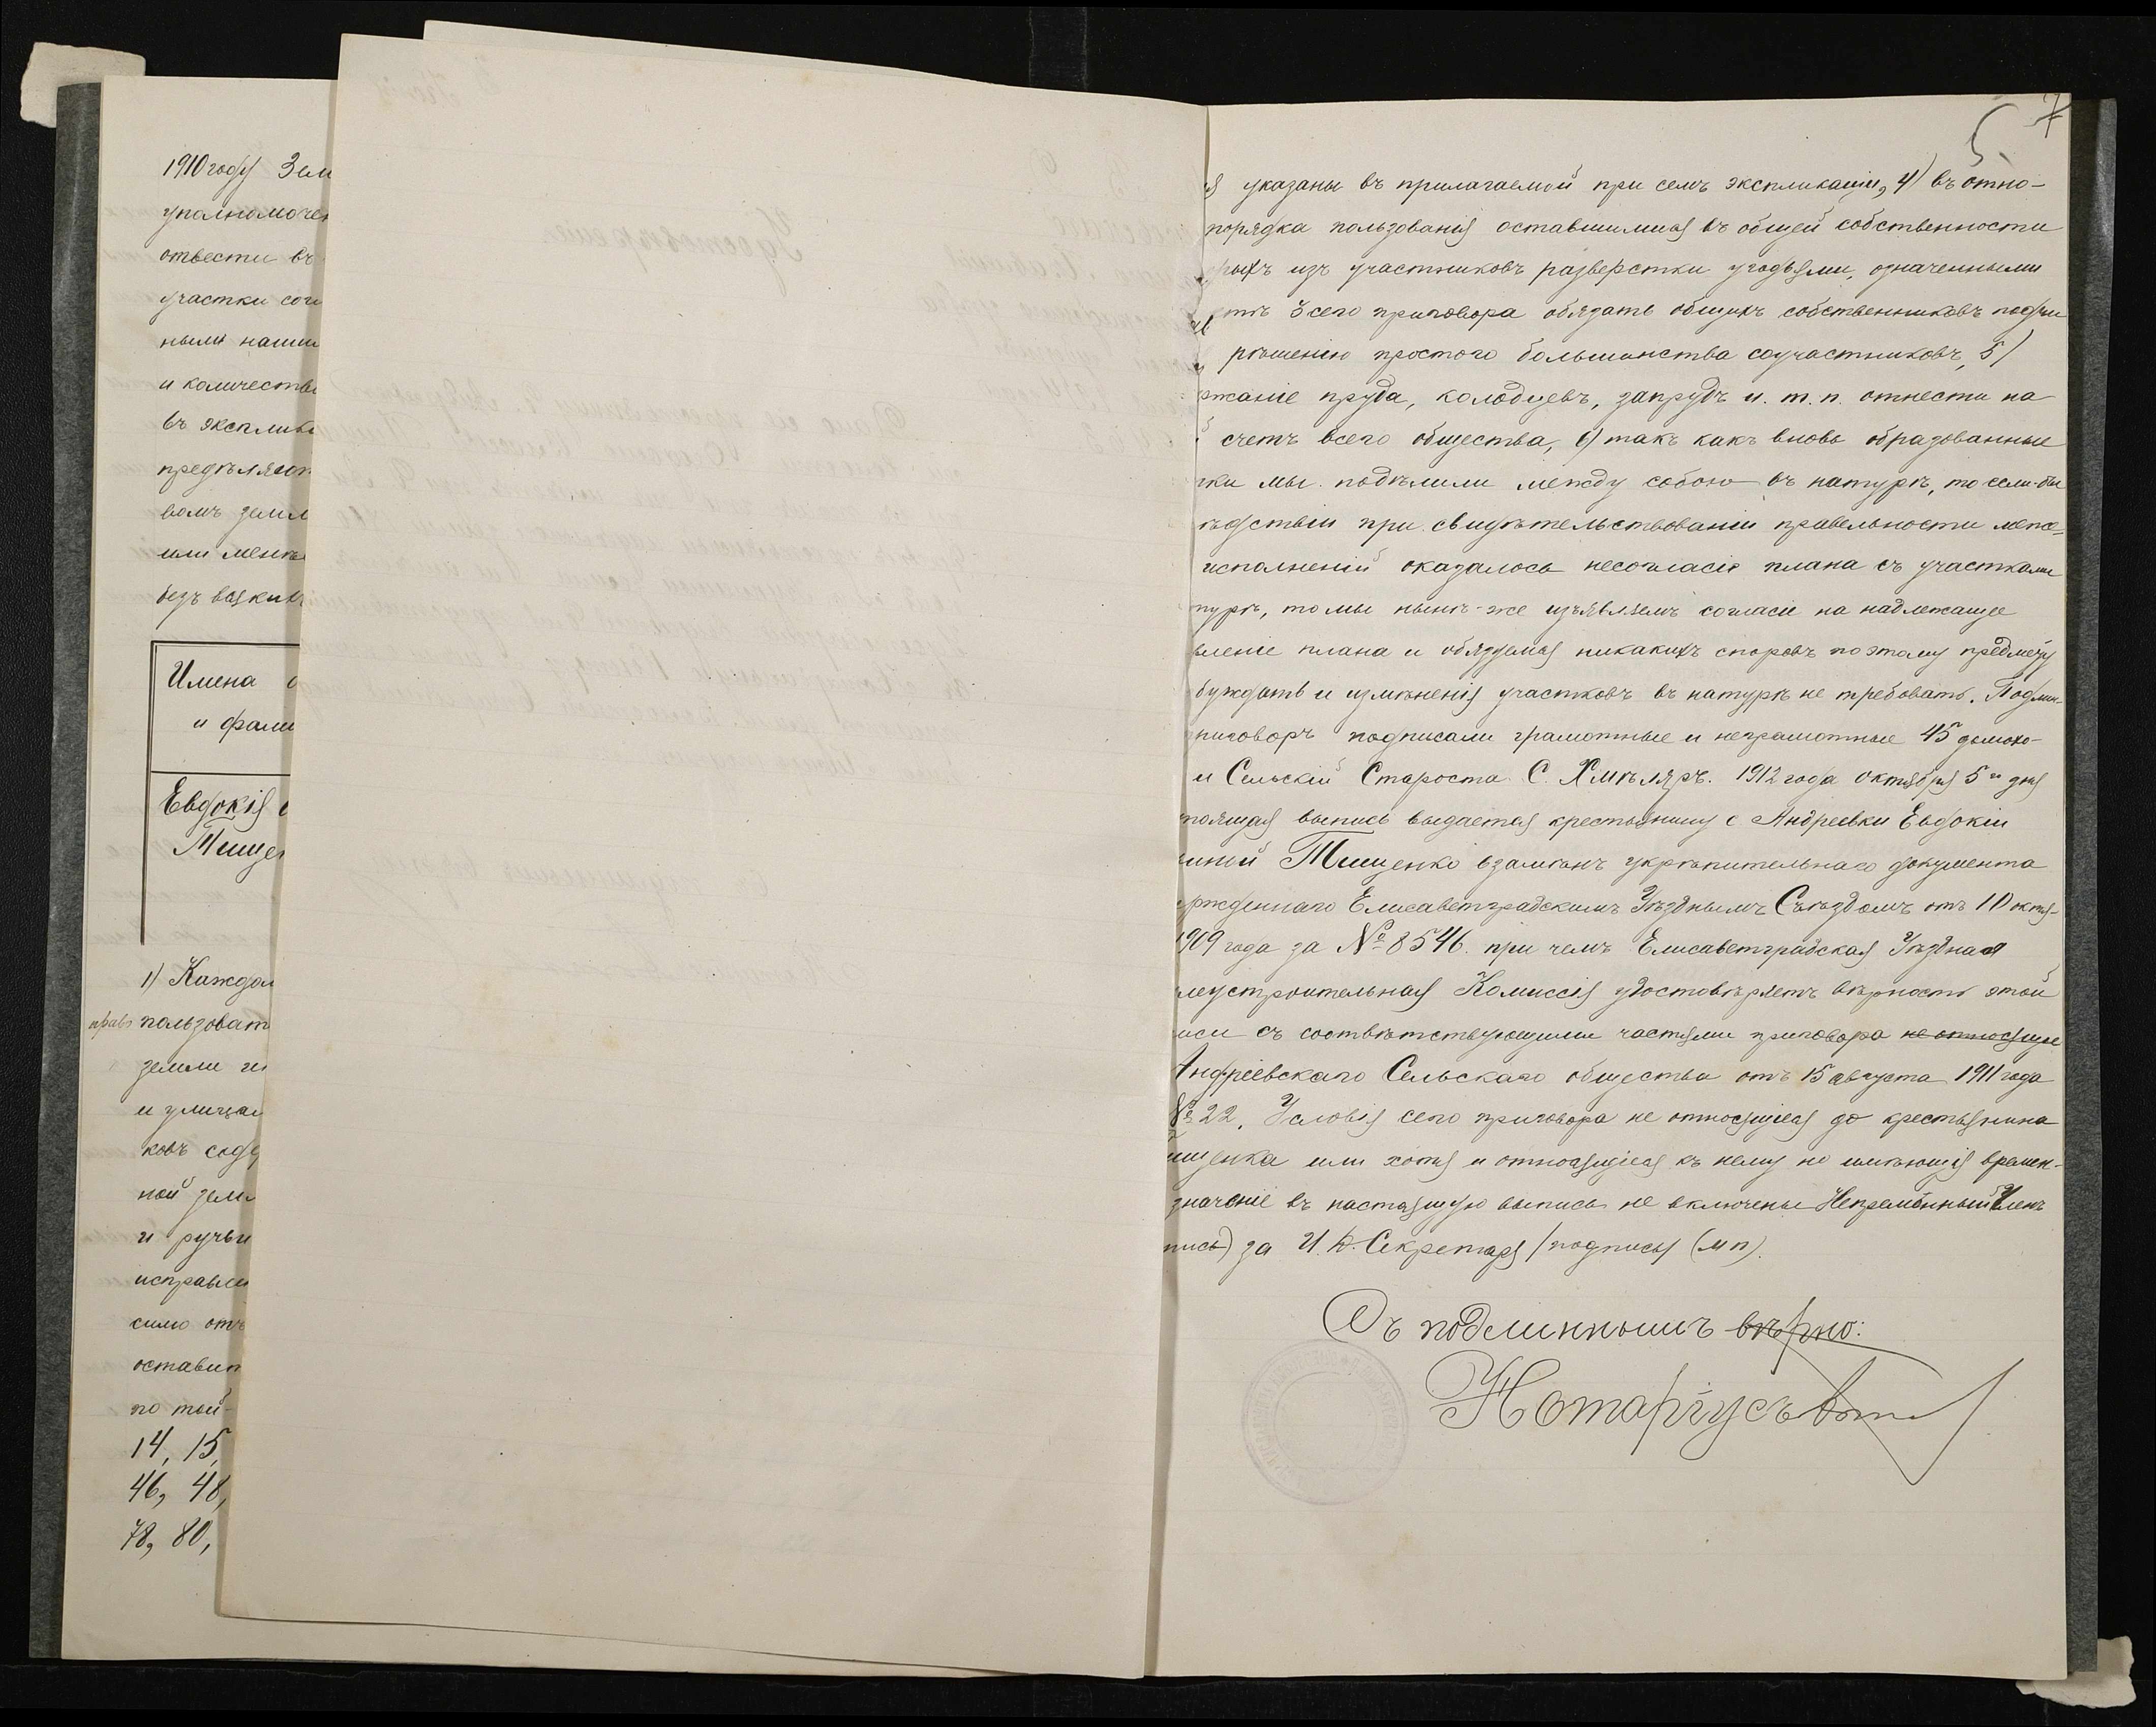 1910 году Зем
уполномочен
отвести въ
участки сог
ными наши
и количеств
въ эксплик
предѣляют
вомъ земл
или менѣ
безъ всяких
Имена о
и фами
Евдокія
Тищен
1) Каждом
право пользоват
земли
и улицам
ковъ сосѣд
ной земл
и ручьи
исправле
силѣ отъ
оставит
по той-
14, 15,
46, 48,
78, 80,
5 7
указаны въ прилагаемой при семъ экспликаціи, 4) въ отно-
порядка пользованія оставшимися въ общей собственности
рыхъ изъ участниковъ разверстки угодьями, означенными
3 сего приговора обязать общихъ собственниковъ подчи
рѣшенію простого большинства соучастниковъ, 5)
ржаніе пруда, колодцевъ, запрудъ и. т. п. отнести на
счетъ всего общества, 6) такъ какъ вновь образованные
тки мы подѣлили между собою въ натурѣ, то если-бы
ѣдствіи при свидѣтельствованіи правельности меже-
исполненій оказалось несогласіе плана съ участками
турѣ, то мы нынѣ-же изъявляемъ согласіе на надлежащее
вленіе плана и обязуемся никакихъ споровъ по этому предмету
буждать и измѣненія участковъ въ натурѣ не требовать. Подлин-
приговоръ подписали грамотные и неграмотные 45 домохо-
и Сельскій Староста С. Хмѣляръ. 1912 года октября 5го дня
тоящая выпись выдается крестьянину с. Андреевки Евдокіи
иной Тищенко взамѣнъ укрѣпительнаго документа
ержденнаго Елисаветградскимъ Уѣзднымъ Съѣздомъ отъ 10 октя-
1909 года за № 8546 при чемъ Елисаветградская Уѣздная
леустроительная Комиссія удостовѣряетъ вѣрность этой
иси съ соотвѣтствующими частями приговора не относящіе
Андреевскаго Сельскаго общества отъ 15 августа 1911 года
№ 22. Условія сего приговора не относящіеся до крестьянина
ищенка или хотя и относящіеся къ нему но имѣющія времен-
значеніе въ настоящую выпись не включены Непремѣнный Членъ
пись) за И. д. Секретаря /подпись/ (м п).
Съ подлиннымъ вѣрно:
Нотаріусъ